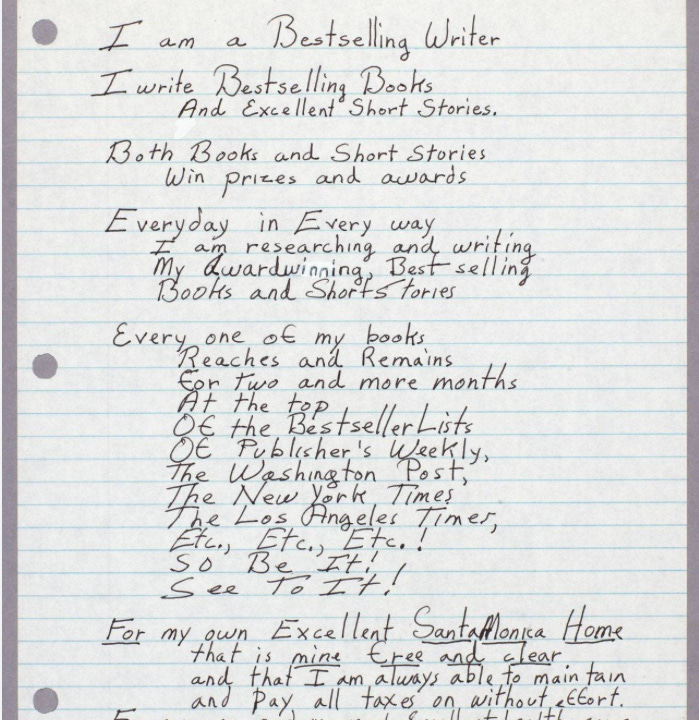 I am a Bestselling Writer
I write Bestselling Books
And Excellent Short Stories.
Both Books and Short Stories
Win prizes and awards
Everyday in Every way
I am researching and writing
My Awardwinning, Best selling
Books and Short Stories
Every one of my books
Reaches and Remains
For two and more months
At the top
Of the Bestseller Lists
Of Publisher's Weekly,
The Washington Post,
The New York Times
The Los Angeles Times,
Etc., Etc., Etc.!
So Be It!
See To It!
For my own Excellent Santa Monica Home
that is mine free and clear
and that I am always able to maintain
and Pay all taxes on without effort.